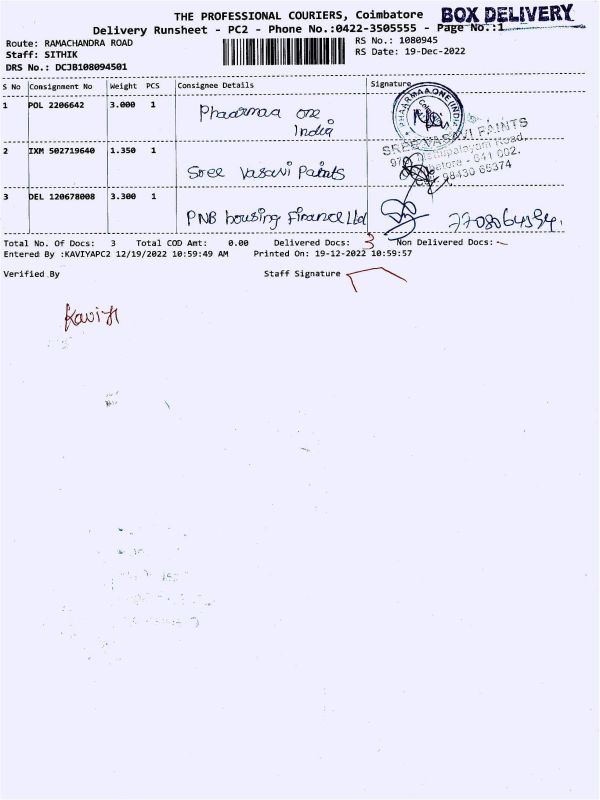 THE PROFESSIONAL COURIERS, Coimbatore
BOX DELIVERY
Delivery Runsheet - PC2 - Phone No.:0422-3505555 - Page No.:1
Route: RAMACHANDRA ROAD
RS No.: 1080945
Staff: SITHIK
RS Date: 19-Dec-2022
DRS No.: DCJB108094501
S No Consignment No Weight PCS Consignee Details Signature
1 POL 2206642 3.000 1 Phaarmaa one
India
PHAARMAA ONE INDIA
2 IXM 502719640 1.350 1 Sree Vasavi Paints
SREE VASAVI PAINTS
641 002.
98430 65374
3 DEL 120678008 3.300 1 PNB housing Finance Ltd
Total No. Of Docs: 3 Total COD Amt: 0.00 Delivered Docs: 3 Non Delivered Docs: -
Entered By :KAVIYAPC2 12/19/2022 10:59:49 AM Printed On: 19-12-2022 10:59:57
Verified By Staff Signature